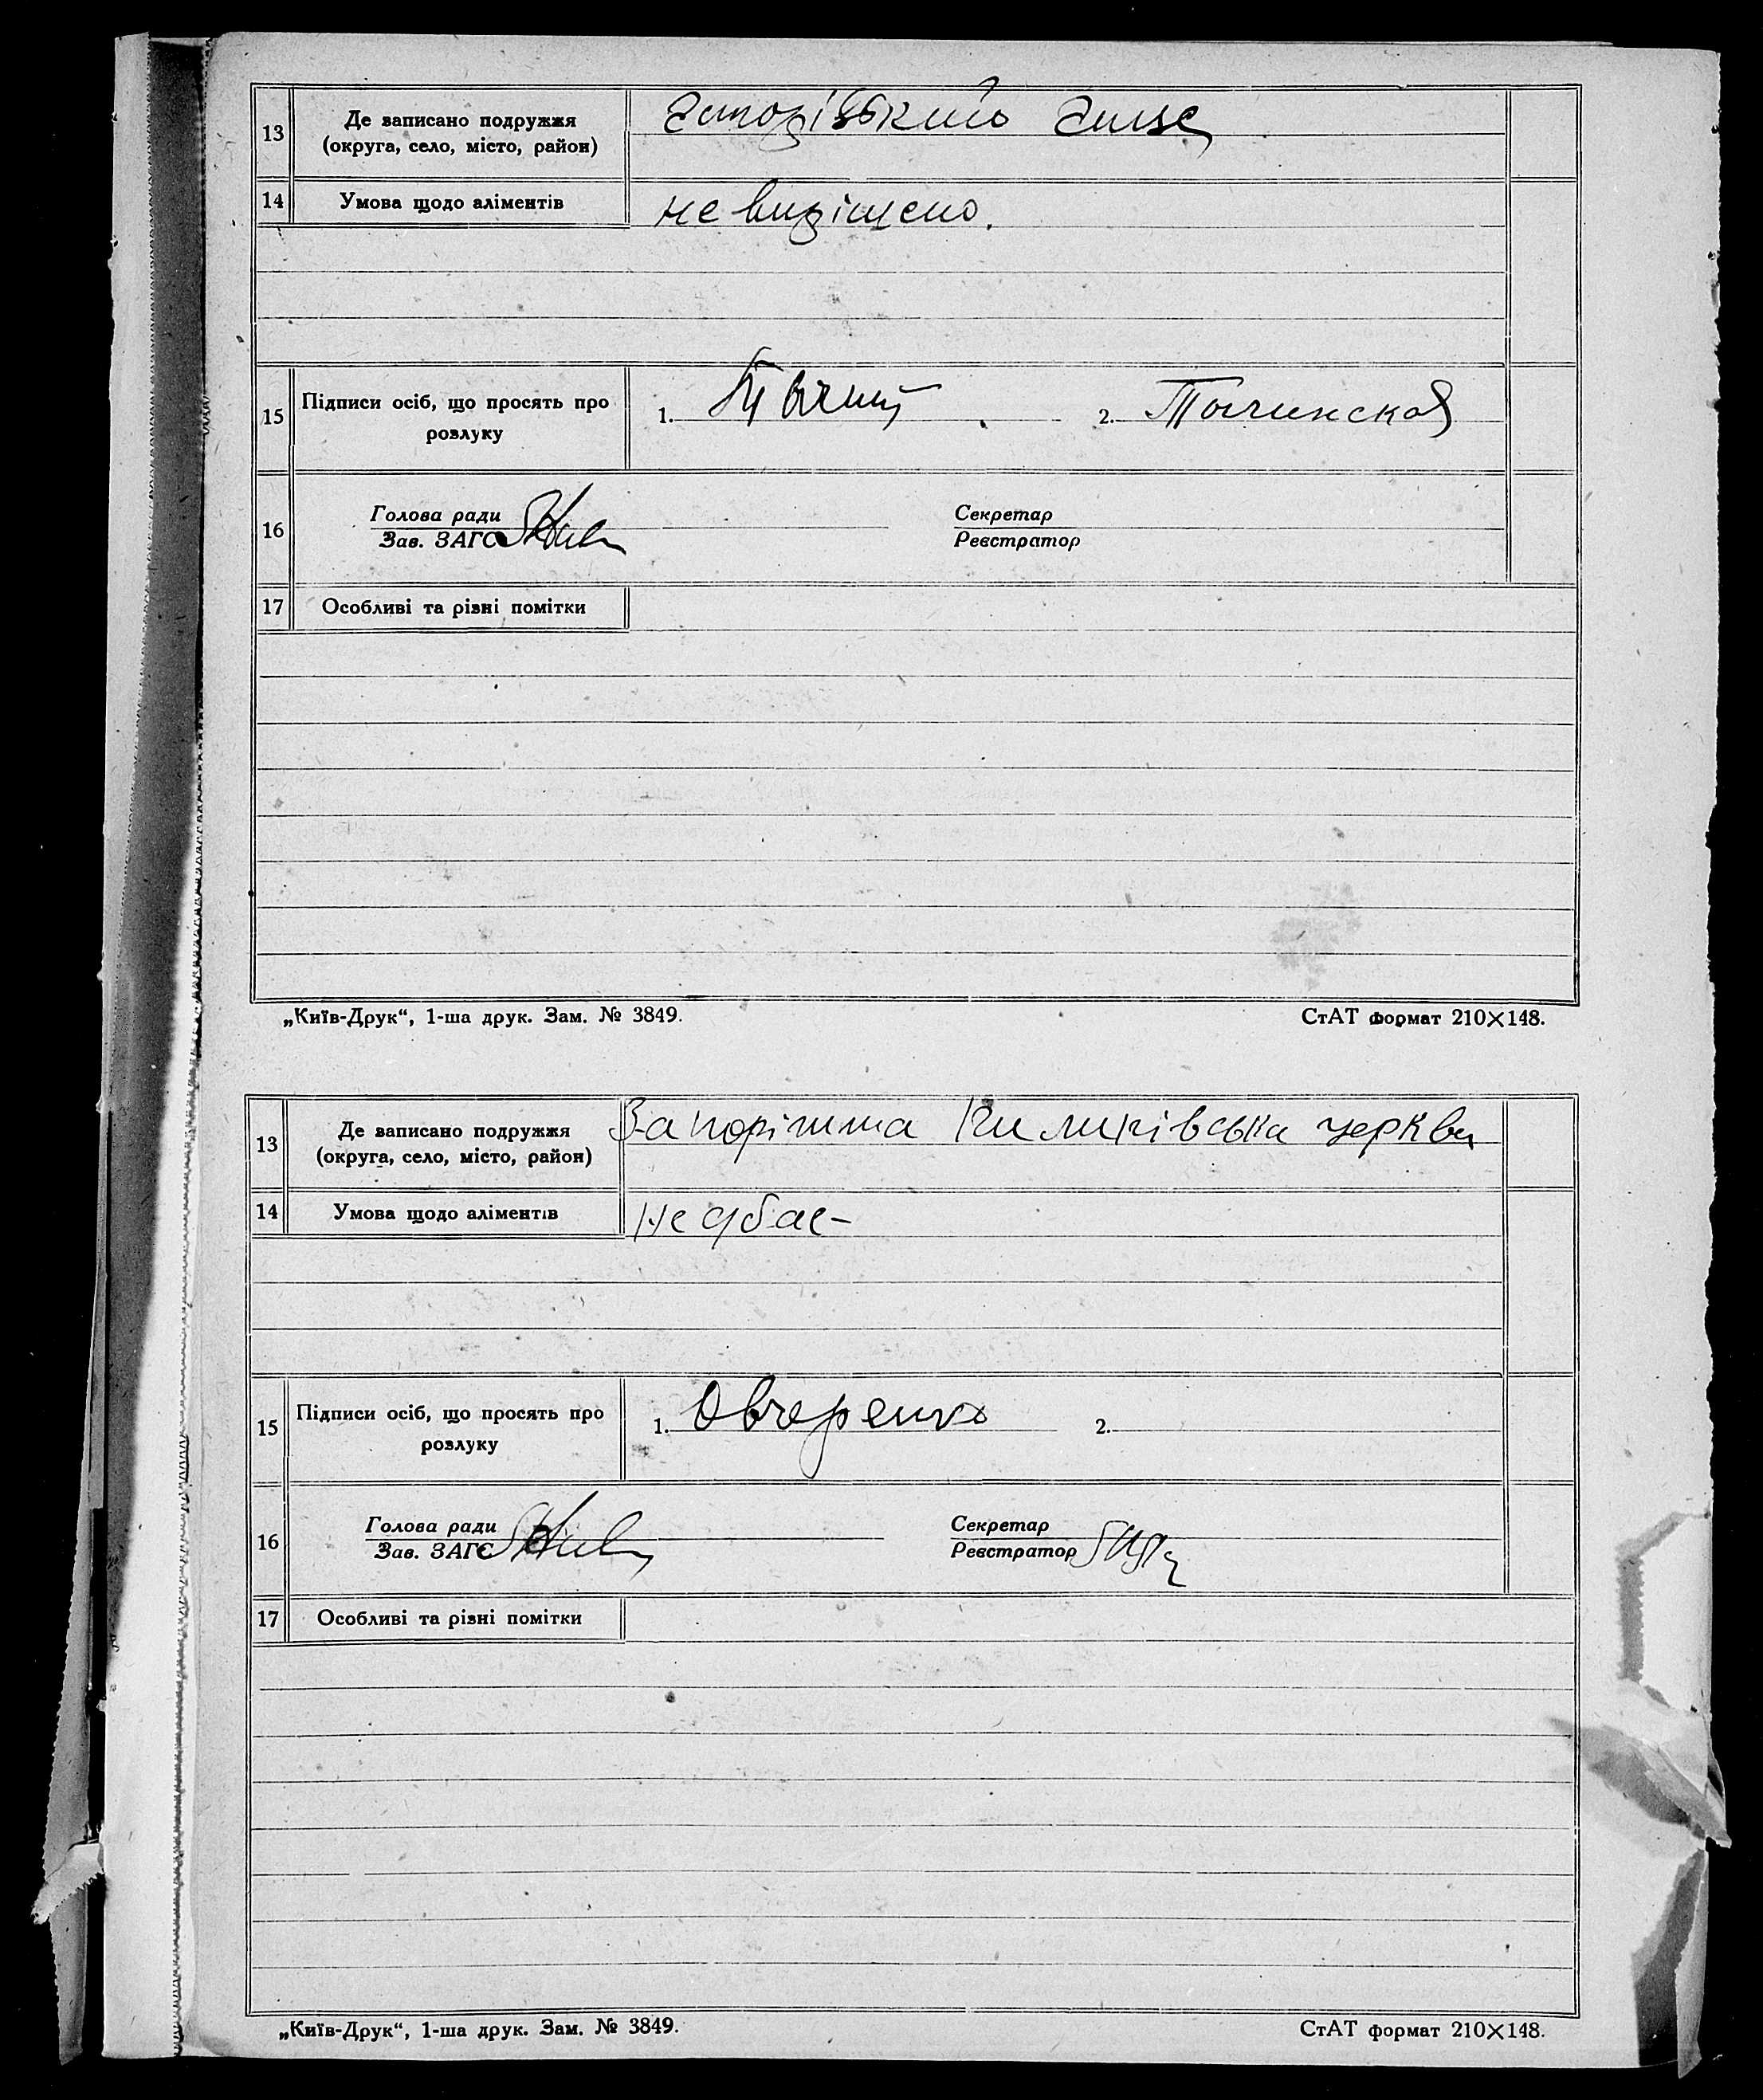 13 Де записано подружжя
(округа, село, місто, район)
14 Умова щодо аліментів не вирішено.
15 Підписи осіб, що просять про
розлуку
1. 2. Тычинская
16 Голова ради
Зав. ЗАГС
Секретар
Реєстратор
17 Особливі та різні помітки
„Київ-Друк“, 1-ша друк. Зам. № 3849. СтАТ формат 210×148.
13 Де записано подружжя
(округа, село, місто, район)
церква
14 Умова щодо аліментів не дбає-
15 Підписи осіб, що просять про
розлуку
1. Овчаренко 2.
16 Голова ради
Зав. ЗАГС
Секретар
Реєстратор
17 Особливі та різні помітки
„Київ-Друк“, 1-ша друк. Зам. № 3849. СтАТ формат 210×148.